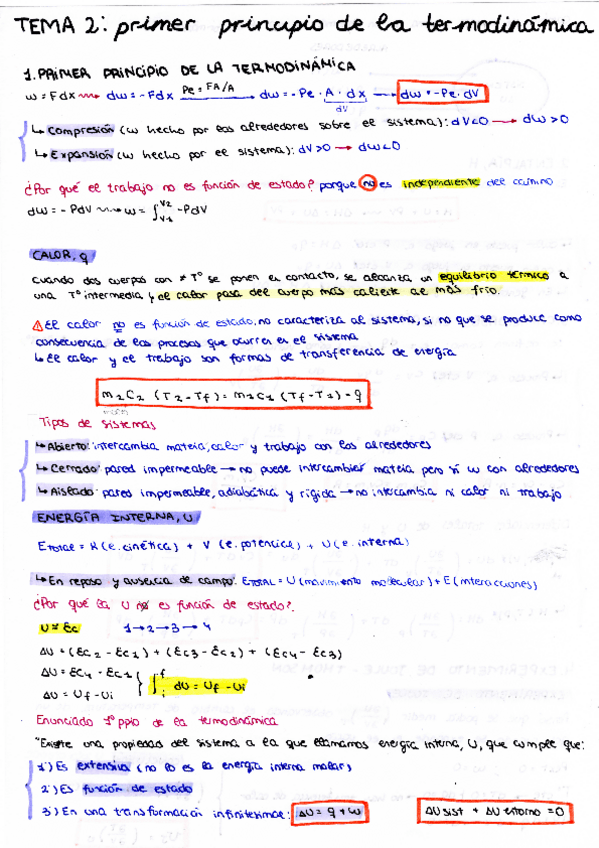 TEMA 2: primer principio de la termodinámica
1. PRIMER PRINCIPIO DE LA TERMODINÁMICA
w = Fdx ⇝ dw = -Fdx —Pe = FA/A→ dw = -Pe · A · dx → dw = -Pe · dV
dV
↳ Compresión (w hecho por los alrededores sobre el sistema): dV<0 → dw >0
↳ Expansión (w hecho por el sistema): dV >0 → dw<0
¿Por qué el trabajo no es función de estado? porque no es independiente del camino
dw = - PdV ⇝ w = ∫ V2 V1 -PdV
CALOR, q
cuando dos cuerpos con ≠ Tº se ponen en contacto, se alcanza un equilibrio térmico a
una Tº intermedia y el calor pasa del cuerpo más caliente al más frío.
⚠ El calor no es función de estado, no caracteriza al sistema, si no que se produce como
consecuencia de los procesos que ocurren en el sistema
↳ el calor y el trabajo son formas de transferencia de energía
m2C2 (T2 - Tf) = m1C1 (Tf - T1) = q
Tipos de sistemas
↳ Abierto: intercambia materia, calor y trabajo con los alrededores
↳ Cerrado: pared impermeable → no puede intercambiar materia pero sí w con alrededores
↳ Aislado: pared impermeable, adiabática y rígida → no intercambia ni calor ni trabajo
ENERGÍA INTERNA, U
ETOTAL = K (e. cinética) + V (e. potencial) + U (e. interna)
↳ En reposo y ausencia de campo: ETOTAL = U (movimiento molecular) + E (interacciones)
¿Por qué la U es función de estado?
U = Ec 1→2→3→4
ΔU = (Ec2 - Ec1) + (Ec3 - Ec2) + (Ec4 - Ec3)
ΔU = Ec4 - Ec1
ΔU = Uf - Ui
∫ f i dU = Uf - Ui
Enunciado 1º ppio de la termodinámica
"Existe una propiedad del sistema a la que llamamos energía interna, U, que cumple que:
1º) Es extensiva (no lo es la energía interna molar)
2º) Es función de estado
3º) En una transformación infinitesimal: ΔU = q + w ΔUsist + ΔU entorno = 0